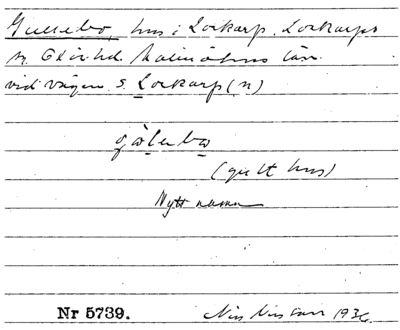 Gullebo, hus i Lockarp, Lockarps
sn Oxie hd. Malmöhus län.
vid vägen S. Lockarp (n)
(gult hus)
Nytt namn
Nr 5739. Nils Nilsson 1936.